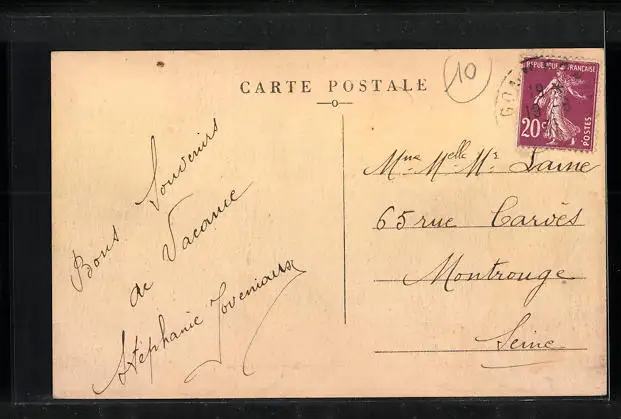 CARTE POSTALE
10
REPUBLIQUE FRANÇAISE
20c
POSTES
Bons Souvenirs
de Vacance
Stéphanie
Mme Melle Mr Laine
65 rue Carvès
Montrouge
Seine